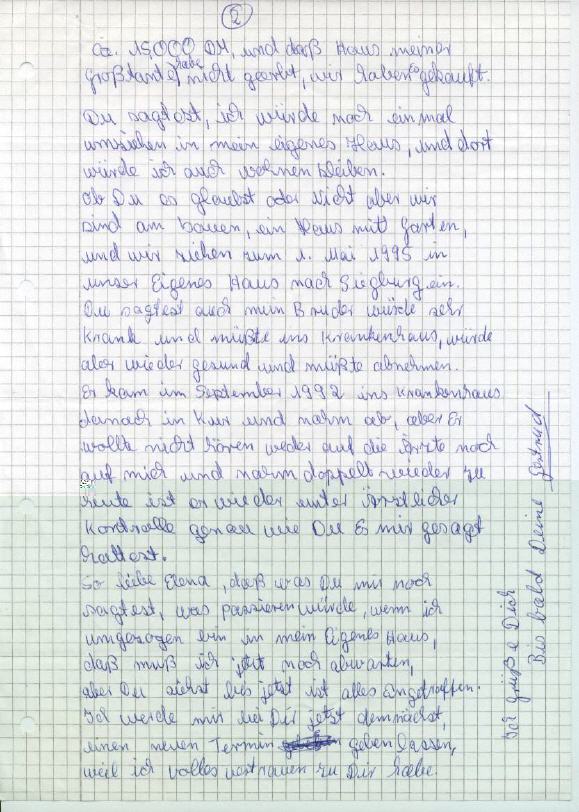 2
Ca. 15.000 DM, und daß Haus meiner
Großtante habe nicht geerbt, wir haben es gekauft.
Du sagtest, ich würde noch einmal
umziehen in mein eigenes Haus, und dort
würde ich auch wohnen bleiben.
Ob Du es glaubst oder Nicht aber wir
sind am bauen, ein Haus mit Garten,
und wir ziehen zum 1. Mai 1995 in
unser Eigenes Haus nach Siegburg ein.
Du sagtest auch mein Bruder würde sehr
Krank und müßte ins Krankenhaus, würde
aber wieder gesund und müßte abnehmen.
Er kam im September 1992 ins Krankenhaus
danach in Kur und nahm ab, aber Er
wollte nicht hören weder auf die Ärzte noch
auf mich und nahm doppelt wieder zu
heute ist er wieder unter Ärztlicher
Kontrolle genau wie Du Es mir gesagt
hattest.
So liebe Elena, daß was Du mir noch
sagtest, was passieren würde, wenn ich
umgezogen bin in mein Eigenes Haus,
daß muß ich jetzt noch abwarten,
aber Du siehst bis jetzt ist alles Eingetroffen.
Ich werde mir bei Dir jetzt demnächst,
einen neuen Termin geben lassen,
weil ich volles vertrauen zu Dir habe.
Ich grüße Dich
Bis bald Deine Gertrud